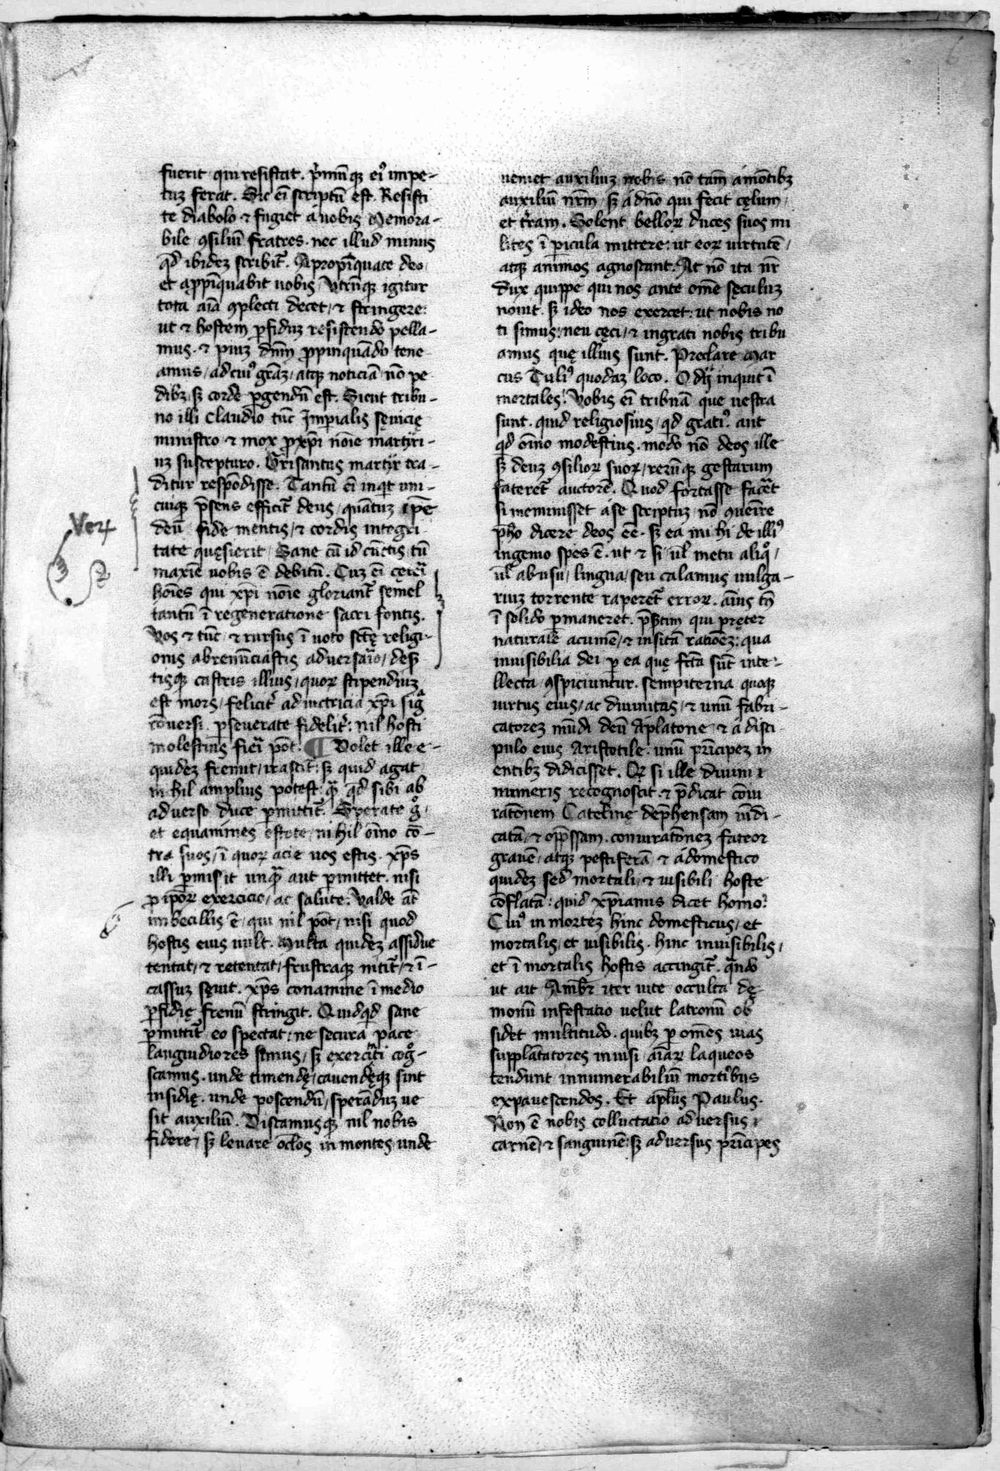 fuerit qui resistat. p̄mūq̨ eiꝰ impe-
tuȝ ferat. Sic eī scriptū est. Resisti
te diabolo ⁊ fugiet a uobis Memora-
bile ꝯsiliū fratres. nec illud minus
qd̄ ibideȝ scribit᷑. Apropīquate deo
et app̄īquabit uobis / Utrūq̨ igitur
tota aīa ꝯplecti decet / ⁊ stringere:
ut ⁊ hostem ꝑfiduȝ resistendo pella-
mus. ⁊ piuȝ dn̄m ꝓpinquādo tene
amus / ad cuiꝰ grāȝ / atq̨ noticiā nō pe
dibȝ / sȝ corde ꝑgendū est. Sicut tribu-
no illi Claudio tūc Imꝑialis sęuicię
ministro ⁊ mox ꝓ xp̄i noīe martyri-
um suscepturo. Grisantus martyr tra-
ditur respōdisse. Tantū eī inqͥt uni-
cuiq̨ p̄sens efficit᷑ deus / quātuȝ ip̄e
deū fide mentis / ⁊ cordis integri
tate quęsierit / Sane cū id cūctis tū
maxīe uobis ē debitū. Cuȝ eī cęteri
hoīes qui xp̄i noīe gloriant᷑ semel
tantū ī regeneratione sacri fontis.
Vos ⁊ tūc / ⁊ rursus ī uoto sctę religi-
onis abrenūciastis aduersario / deseͬ
tisq̨ castris illius / quoꝝ stipendiuȝ
est mors / felicit᷑ ad uictricia xp̄i sigͣ
cōuersi. ꝑseuerate fidelit᷑: nil hosti
molestius fieri pōt. ¶ Dolet ille e-
quideȝ fremit / irascit᷑: sȝ quid agat
nihil amplius potest: qͣ qd̄ sibi ab
aduerso duce ꝑmittit᷑. Sperate gͦ /
et equanimes estote / nihil oīno cō-
tra suos / ī quoꝝ acie uos estis. xp̄s
illi ꝑmisit unqͣ aut ꝑmittet. nisi
ꝓ ip̄oꝝ exercicio / ac salute. Valde at̄
imbecillis ē / qui nil pōt / nisi quod
hostis eius uult. Multa quideȝ assidue
tentat / ⁊ retentat / frustraq̨ nitit᷑ / ⁊ ī-
cassuȝ sęuit. xp̄s conamine ī medio
ꝑfidię frenū stringit. Quidqd̄ sane
ꝑmittit᷑ eo spectat / ne secura pace
languidiores simus / sȝ exercitati cogͦ-
scamus. unde timendę / cauendęq̨ sint
insidię. unde poscendū / sperāduȝ ue
sit auxiliū. Discamusq̨ nil nobis
fidere / sȝ leuare oc̄los in montes unde
Vert
ueniet auxiliuȝ nobis nō tam a mōtibȝ
auxiliū nr̄m / sȝ a dn̄o qui fecit cęlum /
et t᷑ram. Solent belloꝝ duces suos mi
lites ī ꝑicula mittere: ut eoꝝ uirtutē /
atq̨ animos agnoscant. At nō ita nr̄
dux quippe qui nos ante om̄e sęculuȝ
nouit. sȝ ideo nos exercet: ut nobis no
ti simus / neu cęci / ⁊ ingrati nobis tribu
amus quę illius sunt. Pręclare Mar
cus Tuliꝰ quodaȝ loco. O dij inquit ī
mortales. Vobis eī tribuā que uestra
sunt. quid religiosius / qd̄ gratiꝰ. aut
qd̄ oīno modestius. modo nō deos ille
sȝ deuȝ ꝯsilioꝝ suoꝝ / reꝝūq̨ gestarum
fateret᷑ auctorē. Quod fortasse facēt
si meminisset a se scriptuȝ nō quęire
ph̄o dicere deos eē. sȝ ea mihi de illiꝰ
ingenio spes ē. ut ⁊ si / ul̄ metu aliqͦ /
ul̄ abusu / lingua / seu calamus uulga-
riuȝ torrente raperet᷑ erroꝝ. aīus tn̄
ī solido ꝑmaneret. p̄s̄tim qui pręter
naturale acumē / ⁊ insitā rationeȝ: qua
inuisibilia dei ꝑ ea quę fc̄ta sūt inte-
llecta ꝯspiciuntur. sempiterna quoq̨
uirtus eius / ac diuinitas / ⁊ unū fabri-
catoreȝ mūdi deū a platone / ⁊ a disci-
pulo eius Aristotile. unū prīcipeȝ in
entibȝ didicisset. Qͥ si ille diuini ı
muneris recognoscit. ⁊ p̄dicat coīu
ratōnem Catelinę dep̄hensam uīdi-
catā / ⁊ opp̄ssam. coniuratōneȝ fateor
grauē / atq̨ pestiferā / ⁊ a domestico
quideȝ sed mortali / ⁊ uisibili hoste
cōflatā: quid xp̄ianus dicet homo.
Cuiꝰ in morteȝ hinc domesticus / et
mortalis / et uisibilis. hinc inuisibilis /
et ī mortalis hostis accingit᷑. qn̄do
ut ait Ambꝝ iter uite occulta dę
monū infestatio uelut latronū ob
sidet multitudo. quibȝ ꝑ om̄es uias
supplātatores inuisi / aīaꝝ laqueos
tendunt innumerabiliū mortibus
expauescendos. Et apl̄us Paulus.
Non ē nobis colluctacio aduersus ı
carnē / ⁊ sanguinē: sȝ aduersus prīcipes